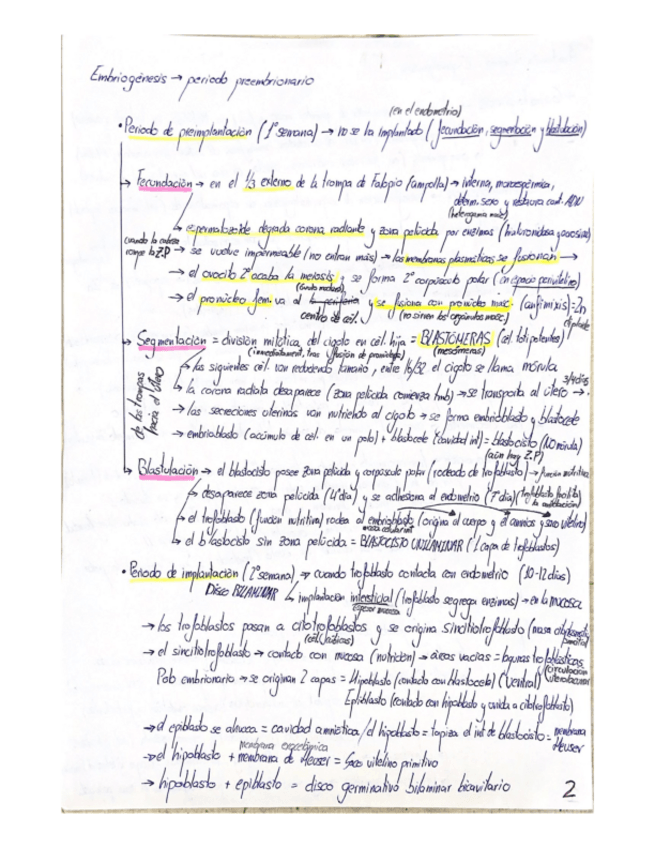 Embriogénesis → periodo preembrionario
(en el endometrio)
• Periodo de preimplantación (1ª semana) → no se ha implantado (fecundación, segmentación y blastulación)
→ Fecundación → en el 1/3 externo de la trompa de Falopio (ampolla) → interna, monospérmica,
determ. sexo y restaura cant. ADN
(heterogama masc)
→ espermatozoide degrada corona radiante y zona pelúcida por enzimas (hialuronidasa y acrosina)
cuando la cabeza rompe la Z.P → se vuelve impermeable (no entran más) → las membranas plasmáticas se fusionan →
→ el ovocito 2º acaba la meiosis y se forma 2º corpúsculo polar (en espacio perivitelino)
→ el pronúcleo fem. va al centro de cél. y se fusiona con pronúcleo masc. (anfimixis) = 2n
(no sirven los orgánulos masc) diploide
→ Segmentación = división mitótica del cigoto en cél. hija = BLASTÓMERAS (cél. totipotentes)
(inmediatamente tras fusión de pronúcleos) (mesómeras)
→ las siguientes cél. van reduciendo tamaño, entre 16/32 el cigoto se llama mórula
3/4 días
→ la corona radiata desaparece (zona pelúcida comienza tmb) → se transporta al útero →
de las trompas hacia el útero
→ las secreciones uterinas van nutriendo al cigoto → se forma embrioblasto y blastocele
→ embrioblasto (acúmulo de cél. en un polo) + blastocele (cavidad int) = blastocisto (NO mórula)
(aún hay Z.P)
→ Blastulación → el blastocisto posee zona pelúcida y corpúsculo polar (rodeado de trofoblasto) → función nutritiva
→ desaparece zona pelúcida (4º día) y se adhesiona al endometrio (7º día) (trofoblasto facilita la implantación)
→ el trofoblasto (función nutritiva) rodea al embrioblasto (origina al cuerpo y el amnios y saco vitelino)
masa celular int
→ el blastocisto sin zona pelúcida = BLASTOCISTO UNILAMINAR (1 capa de trofoblastos)
• Periodo de implantación (2ª semana) → cuando trofoblasto contacta con endometrio (10-12 días)
DISCO BILAMINAR → implantación intersticial (trofoblasto segrega enzimas) → en la mucosa
espesor mucosa
→ los trofoblastos pasan a citotrofoblastos y se origina sincitiotrofoblasto (masa
→ el sincitiotrofoblasto → contacto con mucosa (nutrición) → áreas vacías = lagunas trofoblásticas
(circulación uteroplacentar)
Polo embrionario → se originan 2 capas = Hipoblasto (contacto con blastocele) (ventral)
Epiblasto (contacto con hipoblasto y unida a citotrofoblasto)
→ el epiblasto se ahueca = cavidad amniótica / el hipoblasto = tapiza el int de blastocisto = membrana Heuser
membrana exocelómica
→ el hipoblasto + membrana de Heuser = saco vitelino primitivo
→ hipoblasto + epiblasto = disco germinativo bilaminar bicavitario
2